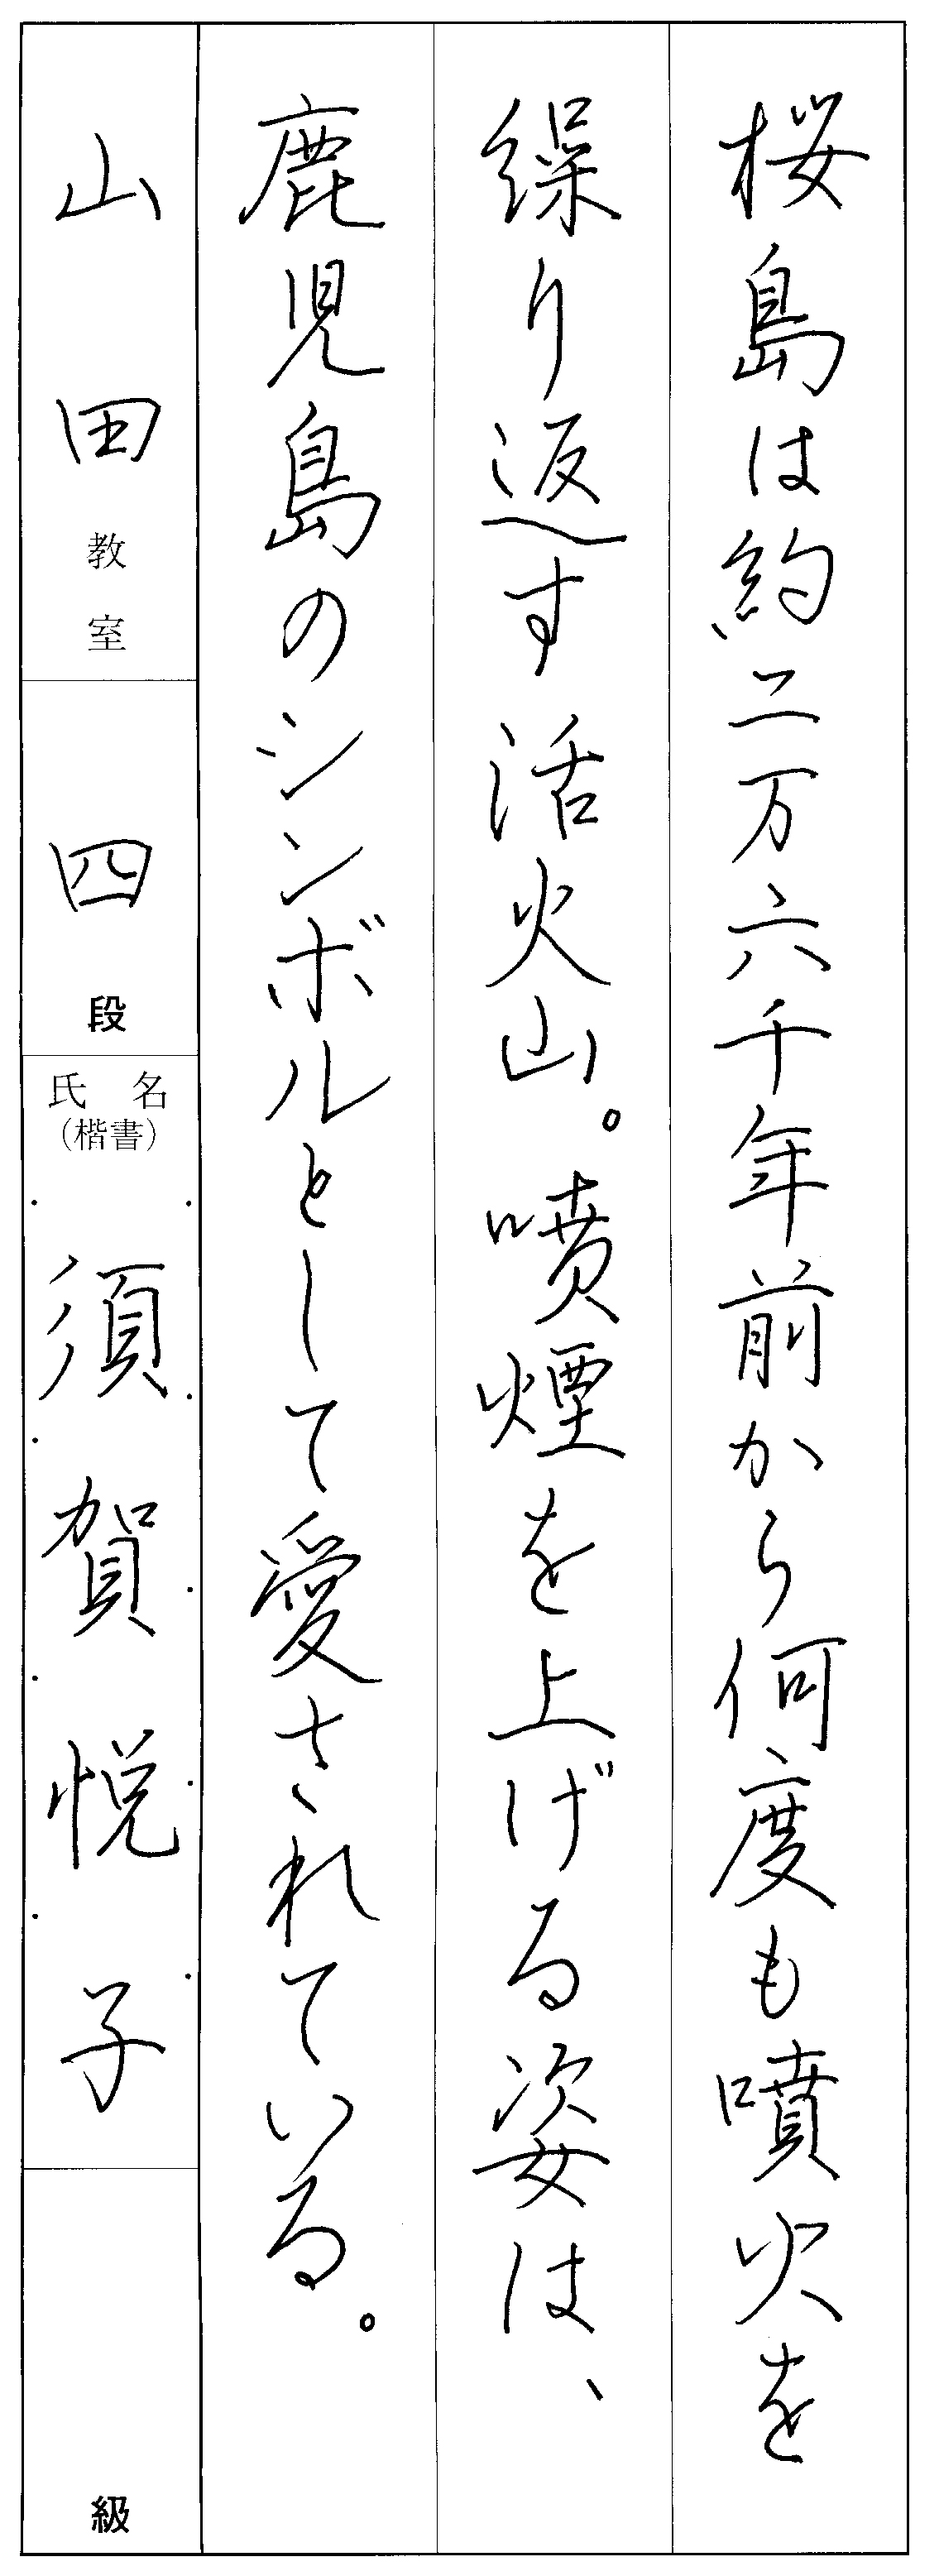 桜島は約二万六千年前から何度も噴火を
繰り返す活火山。噴煙を上げる姿は、
鹿児島のシンボルとして愛されている。
山田教室
四段
氏名
(楷書)
須賀悦子
級